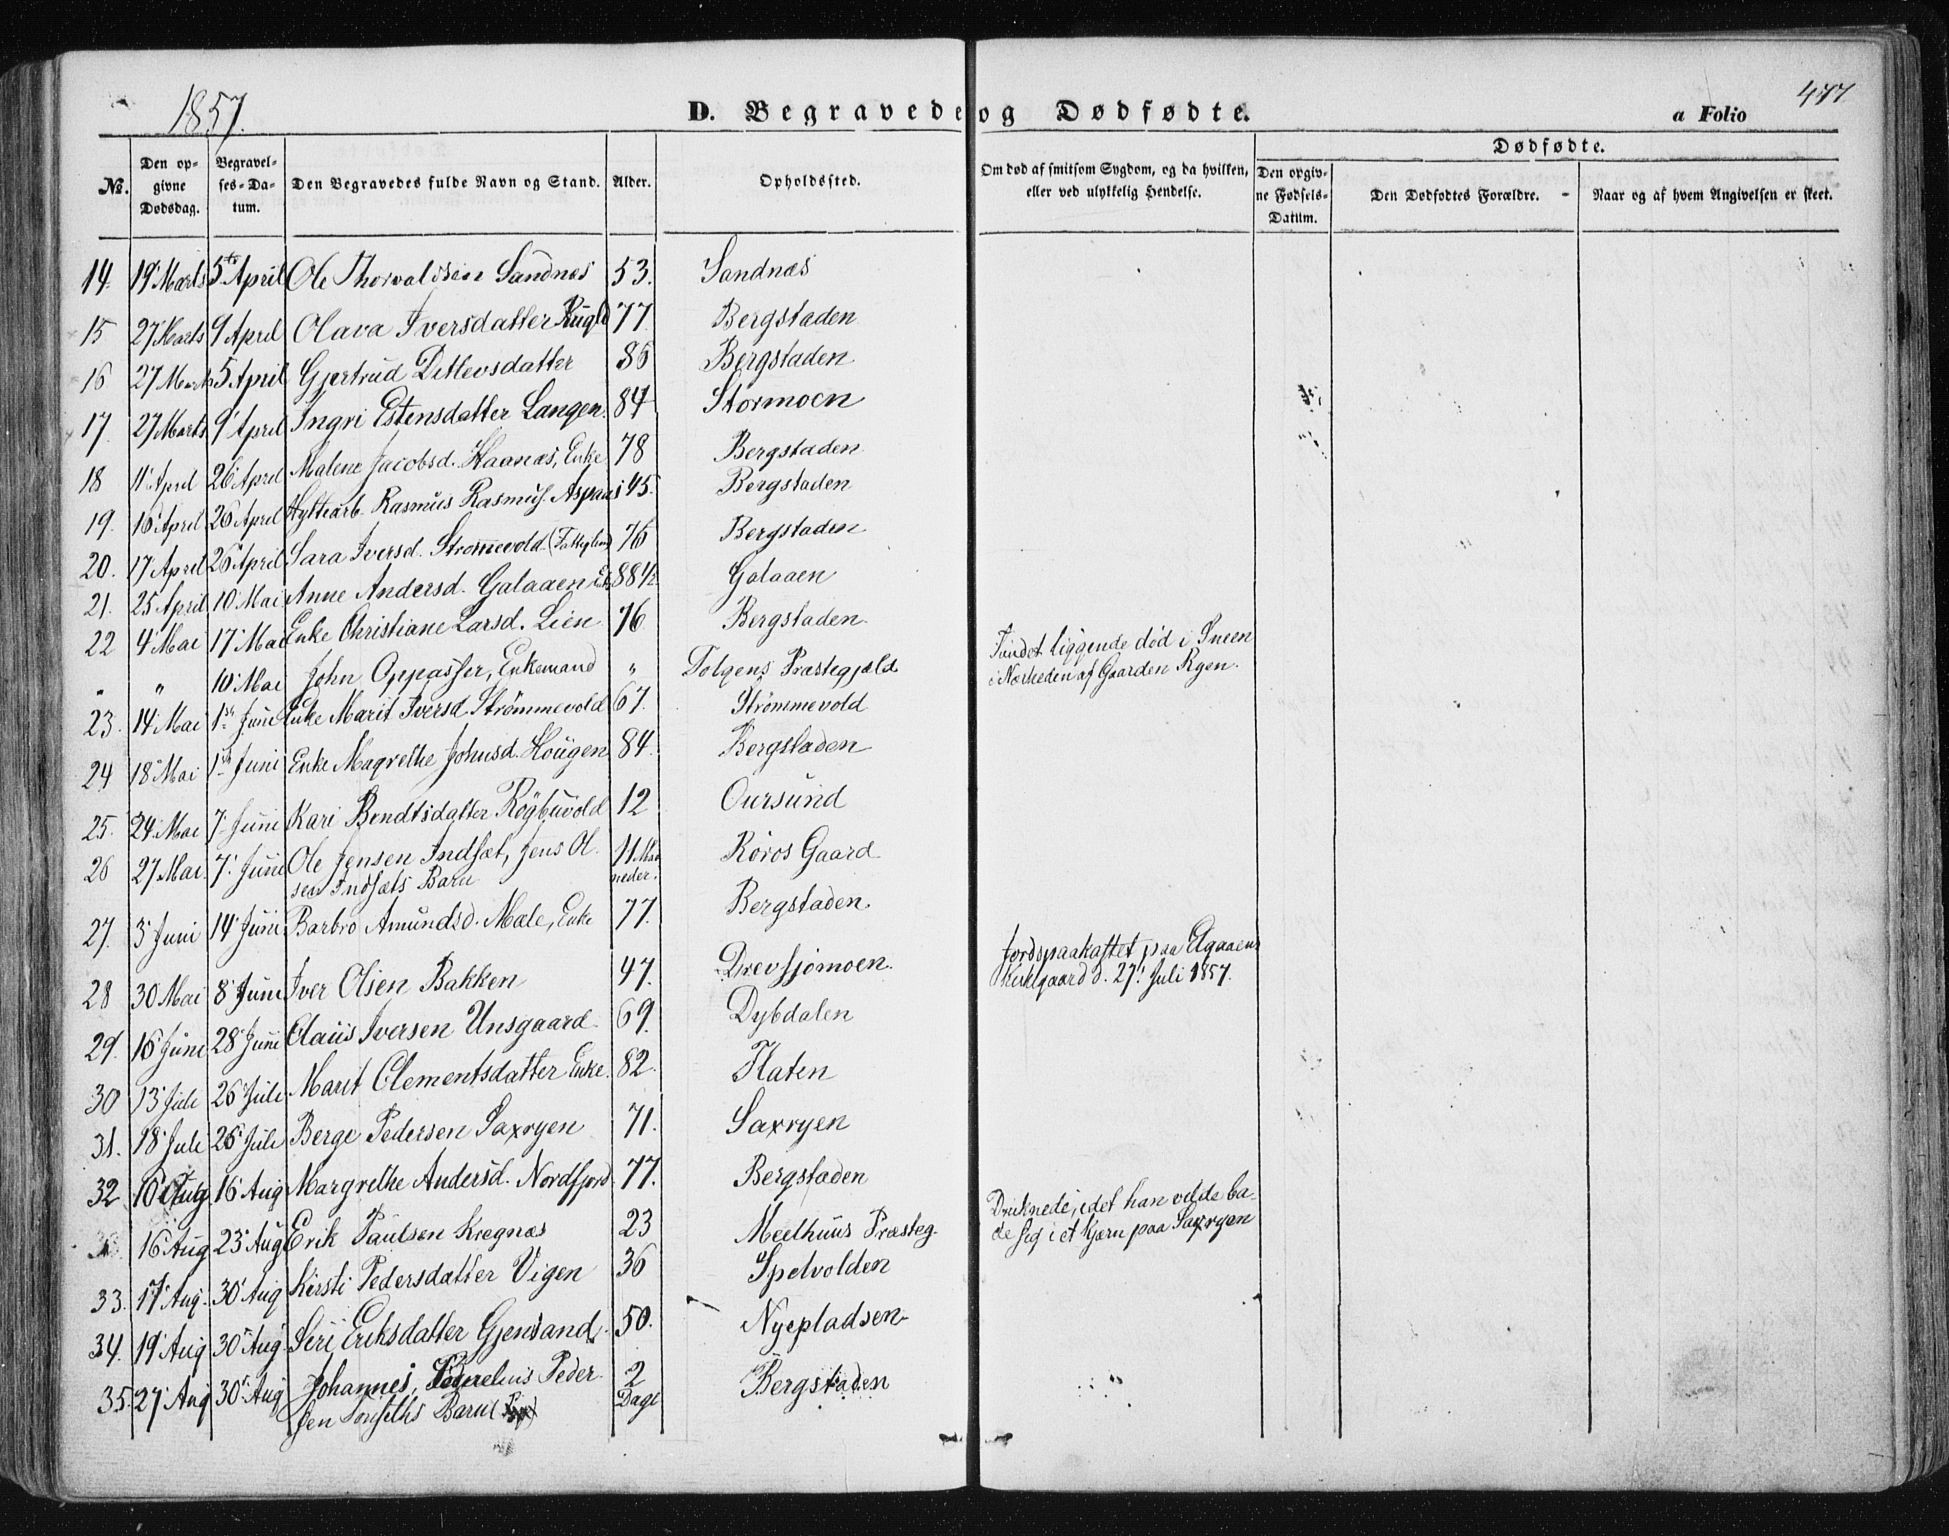 1857.
D. Begravede og Dødfødte.
a Folio
477
No.
Den opgivne Dødsdag.
Begravelses-Datum.
Den Begravedes fulde Navn og Stand.
Alder.
Opholdssted.
Om død af smitsom Sygdom, og da hvilken, eller ved ulykkelig Hendelse.
Dødfødte.
Den opgivne Fødsels-Datum.
Den Dødfødtes Forældre.
Naar og af hvem Angivelsen er skeet.
14. 19 Marts 5te April Ole Thorvaldsen Sandnes 53. Sandnæs
15 27 Marts 9 April Olava Iversdatter Rugld 77. Bergstaden
16 27 Marts 5 April Gjertrud Ditlevsdatter 86 Bergstaden
17. 27 Marts 9 April Ingri Estensdatter Langen. 84 Stormoen
18 11 April 26 April Malene Jacobsd. Haanæs, Enke 78 Bergstaden
19. 16 April 26 April Hyttearb. Rasmus Rasmus. Aspaas 45. Bergstaden
20. 17 April 26 April Sara Iversd. Strømmevold (Fattiglem) 76 Bergstaden
21. 25 April 10 Mai Anne Andersd. Galaaen Ek 88 1/2 Galaaen
22 4 Mai 17 Mai Enke Christiane Larsd. Lien 76 Bergstaden
" " 10 Mai John Oppasser, Enkemand " Tolgens Præstegjæld Fundet liggende død i Sneen
i Nærheden af Gaarden Ryen.
23. 14 Mai 1ste Juni Enke Marit Iversd Strømmevold 67. Strømmevold
24 18 Mai 1ste Juni Enke Magrethe Johnsd. Hougen 84. Bergstaden
25. 24 Mai 7 Juni Kari Bendtsdatter Røgbuvold 12 Oursund
26 27 Mai 7. Juni Ole Jensen Indset, Jens Ol- 11 Maa- Røros Gaard
sen Indsets Barn neder.
27. 3 Juni 14 Juni Barbro Amundsd. Male, Enke 77. Bergstaden.
28 30 Mai 8 Juni Iver Olsen Bakken 47. Drevsjømoen. Jordspaakastet paa Elgaaens
Kirkegaard d. 27. Juli 1857.
29. 16 Juni 28 Juni Claus Iversen Unsgaard. 69. Dybdalen
30 13 Juli 26 Juli Marit Clementsdatter Enke. 82. Flaten
31. 18 Juli 26 Juli Berge Pedersen Saxryen 71. Saxryen
32 10 Aug 16 Aug Margrethe Andersd. Nordfjord 77. Bergstaden
16 Aug 23 Aug Erik Paulsen Kregnæs 23 Meelhuus Præsteg. Druknede, idet han vilde ba-
de sig i et Kjærn paa Saxryen
33. 17 Aug. 30 Aug Kirsti Pedersdatter Vigen 36 Spelvolden
34. 19 Aug 30 Aug Siri Eriksdatter Gjensand. 50. Nyepladsen
35. 27 Aug 30 Aug Johannes, Peder 2 Bergstaden
sen Tonseths Barn Dage